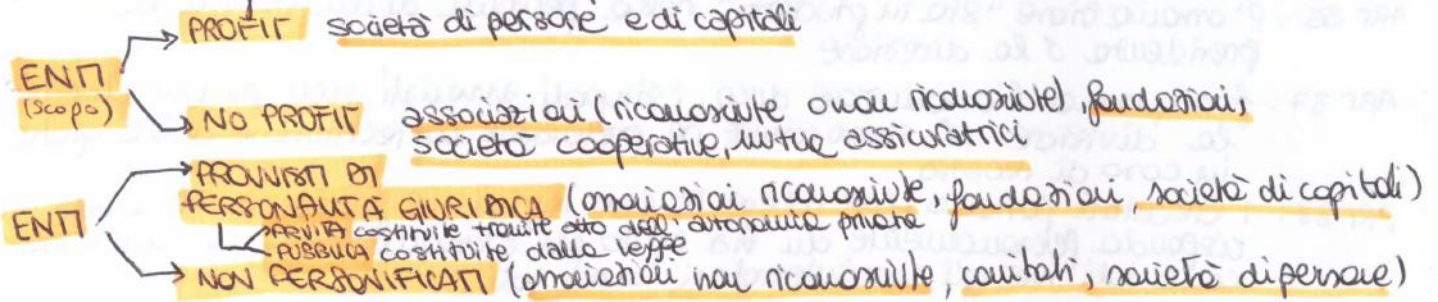 PROFIT società di persone e di capitali
ENTI
(scopo)
NO PROFIT associazioni (riconosciute o non riconosciute), fondazioni,
società cooperative, mutue assicuratrici
PROVVISTI DI
PERSONALITÀ GIURIDICA (associazioni riconosciute, fondazioni, società di capitali)
ENTI
PRIVATA costituite tramite atto dell'autonomia privata
PUBBLICA costituite dalla legge
NON PERSONIFICATI (associazioni non riconosciute, comitati, società di persone)